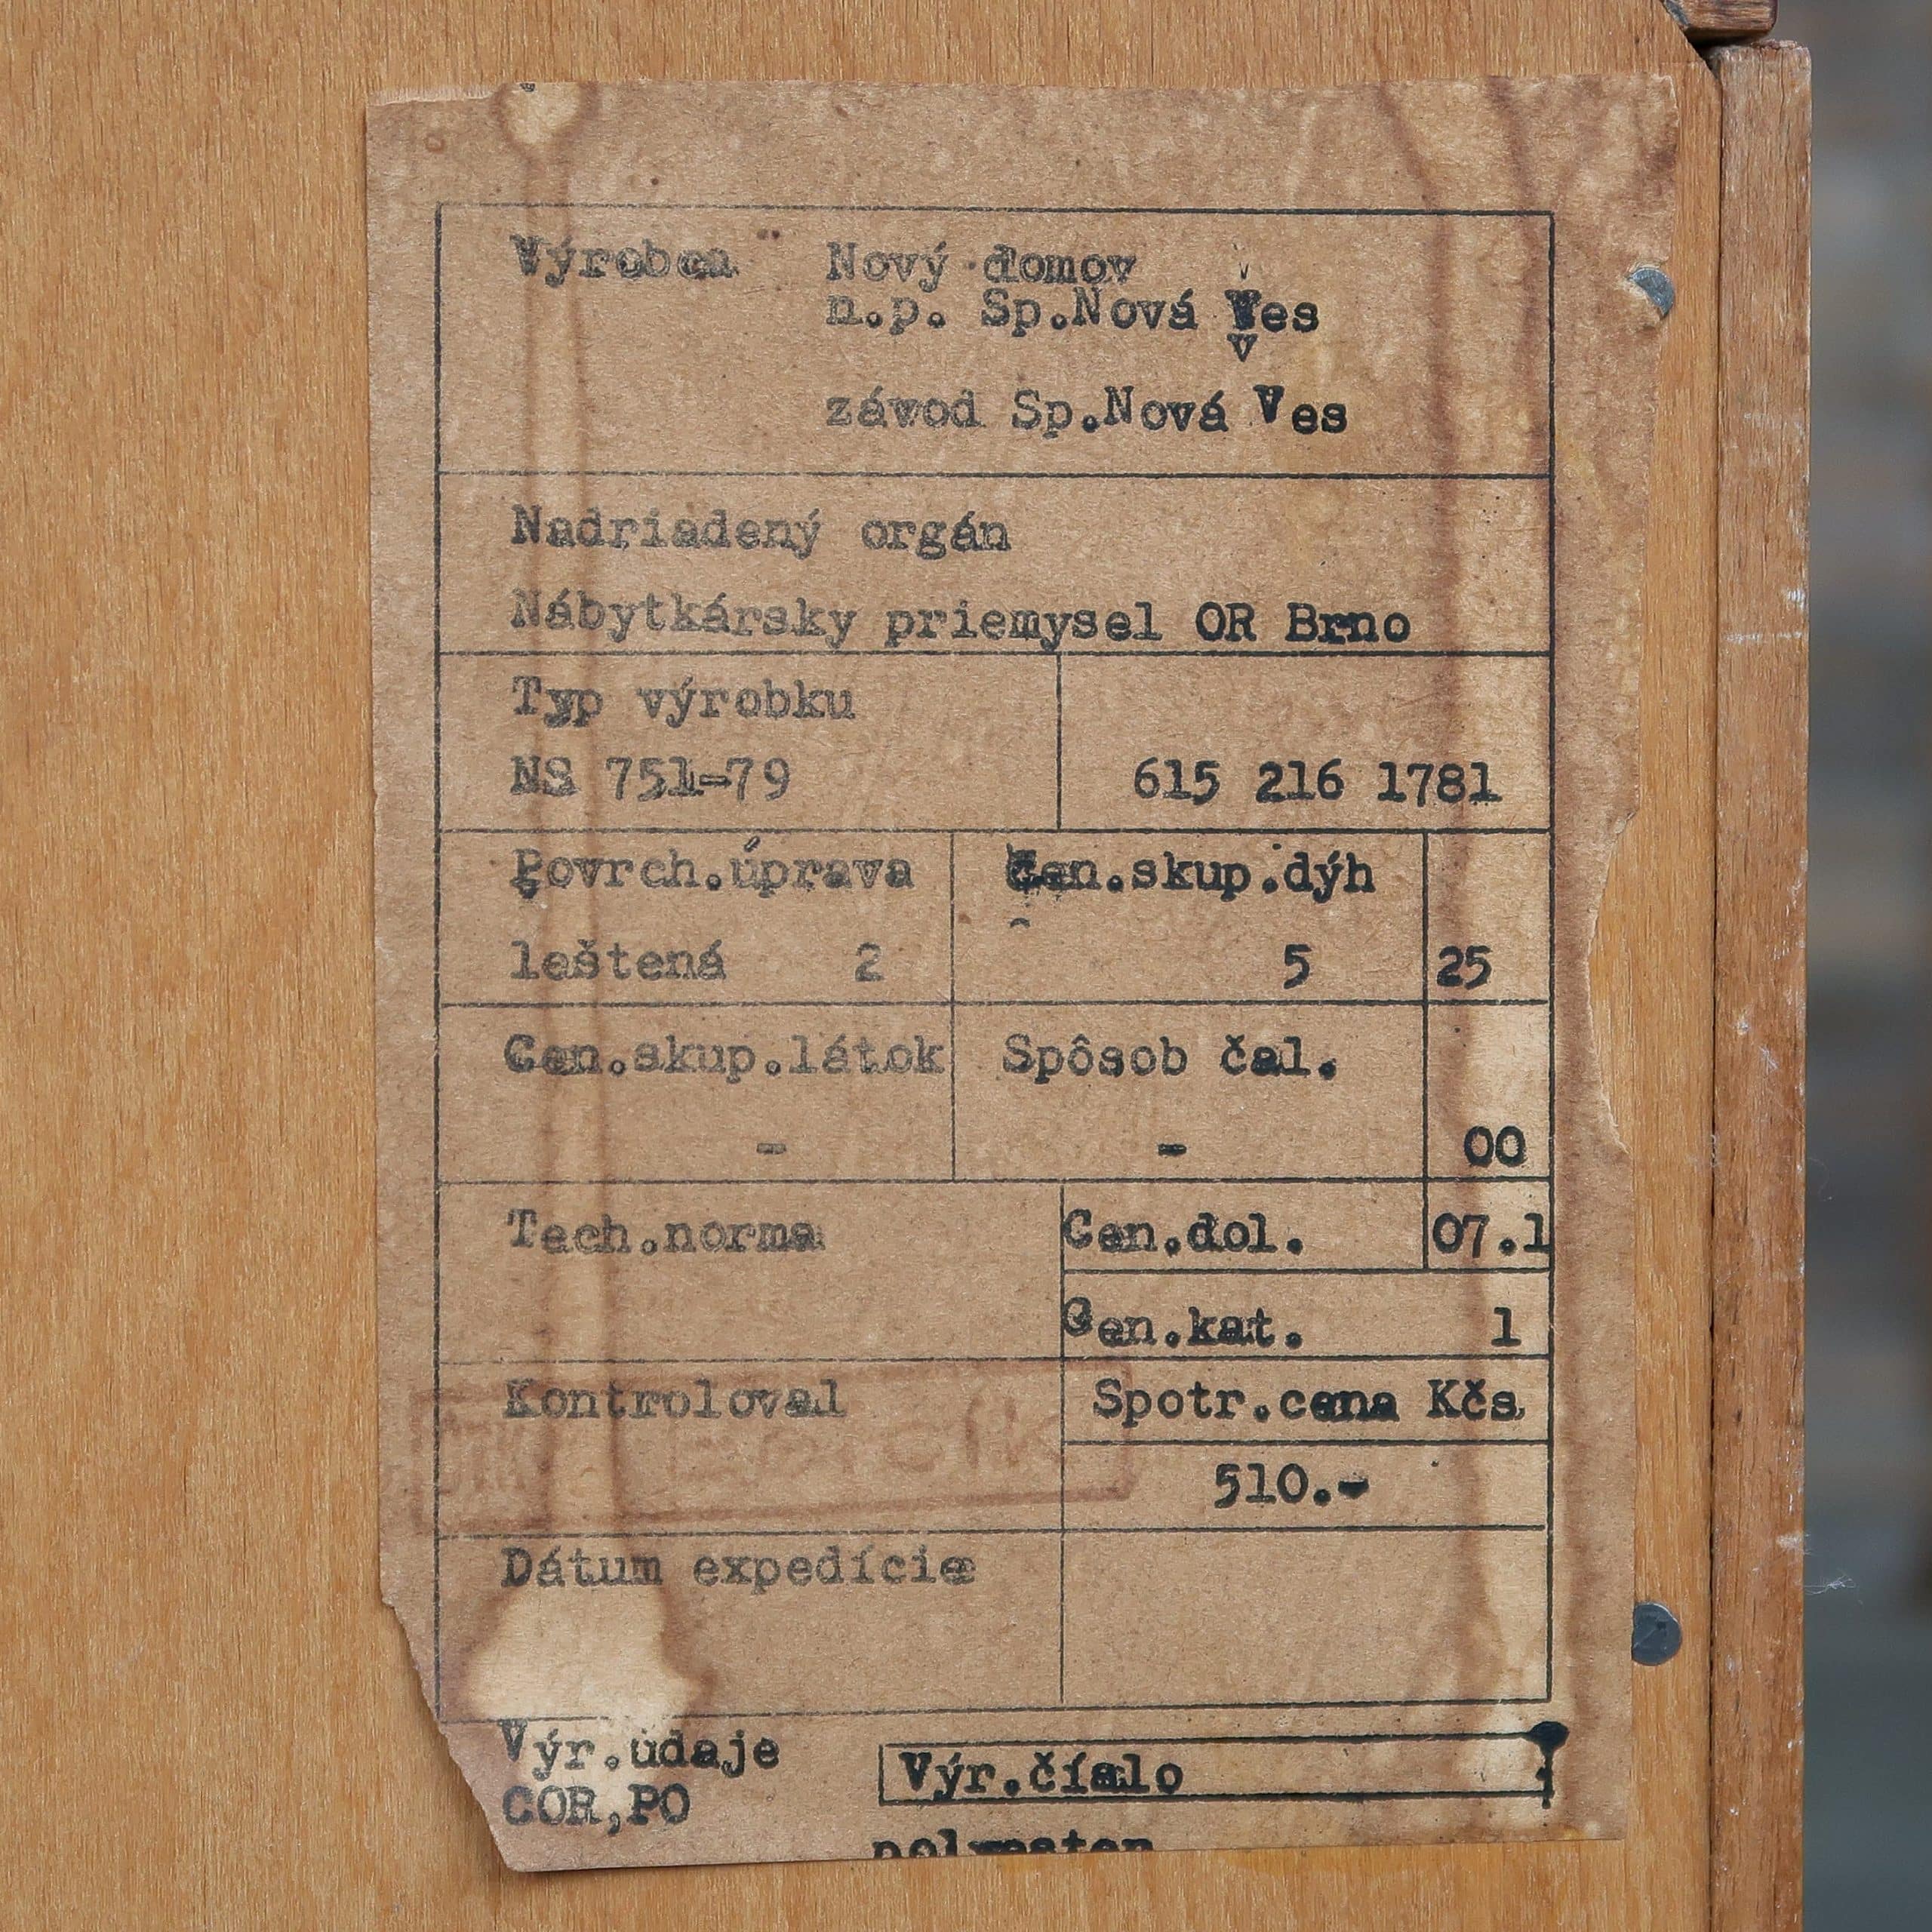 Výrobca Nový domov
n.p. Sp.Nová Ves
závod Sp.Nová Ves
Nadriadený orgán
Nábytkársky priemysel OR Brno
Typ výrobku
NS 751-79 615 216 1781
Povrch.úprava Cen.skup.dýh
leštená 2 5 25
Cen.skup.látok Spôsob čal.
- - 00
Tech.norma Cen.dol. 07.1
Cen.kat. 1
Kontroloval Spotr.cena Kčs
510.-
Dátum expedície
Výr.údaje
Výr.číslo
COR,PO